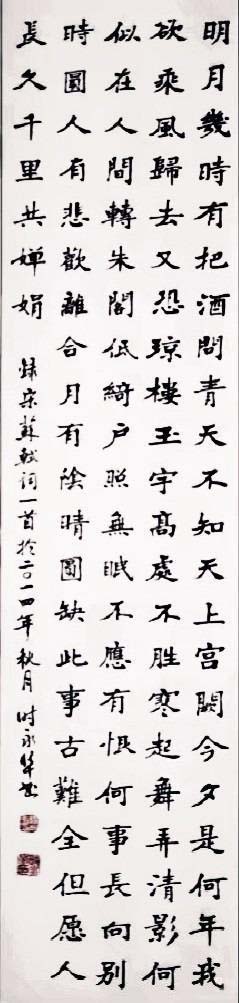 明月幾時有把酒問青天不知天上宮闕今夕是何年我
欲乘風歸去又恐琼樓玉宇高處不胜寒起舞弄清影何
似在人間轉朱閣低綺户照無眠不應有恨何事長向別
時圓人有悲歡離合月有陰晴圓缺此事古難全但愿人
長久千里共嬋娟
錄宋蘇軾詞一首於二〇一四年秋月时永華书